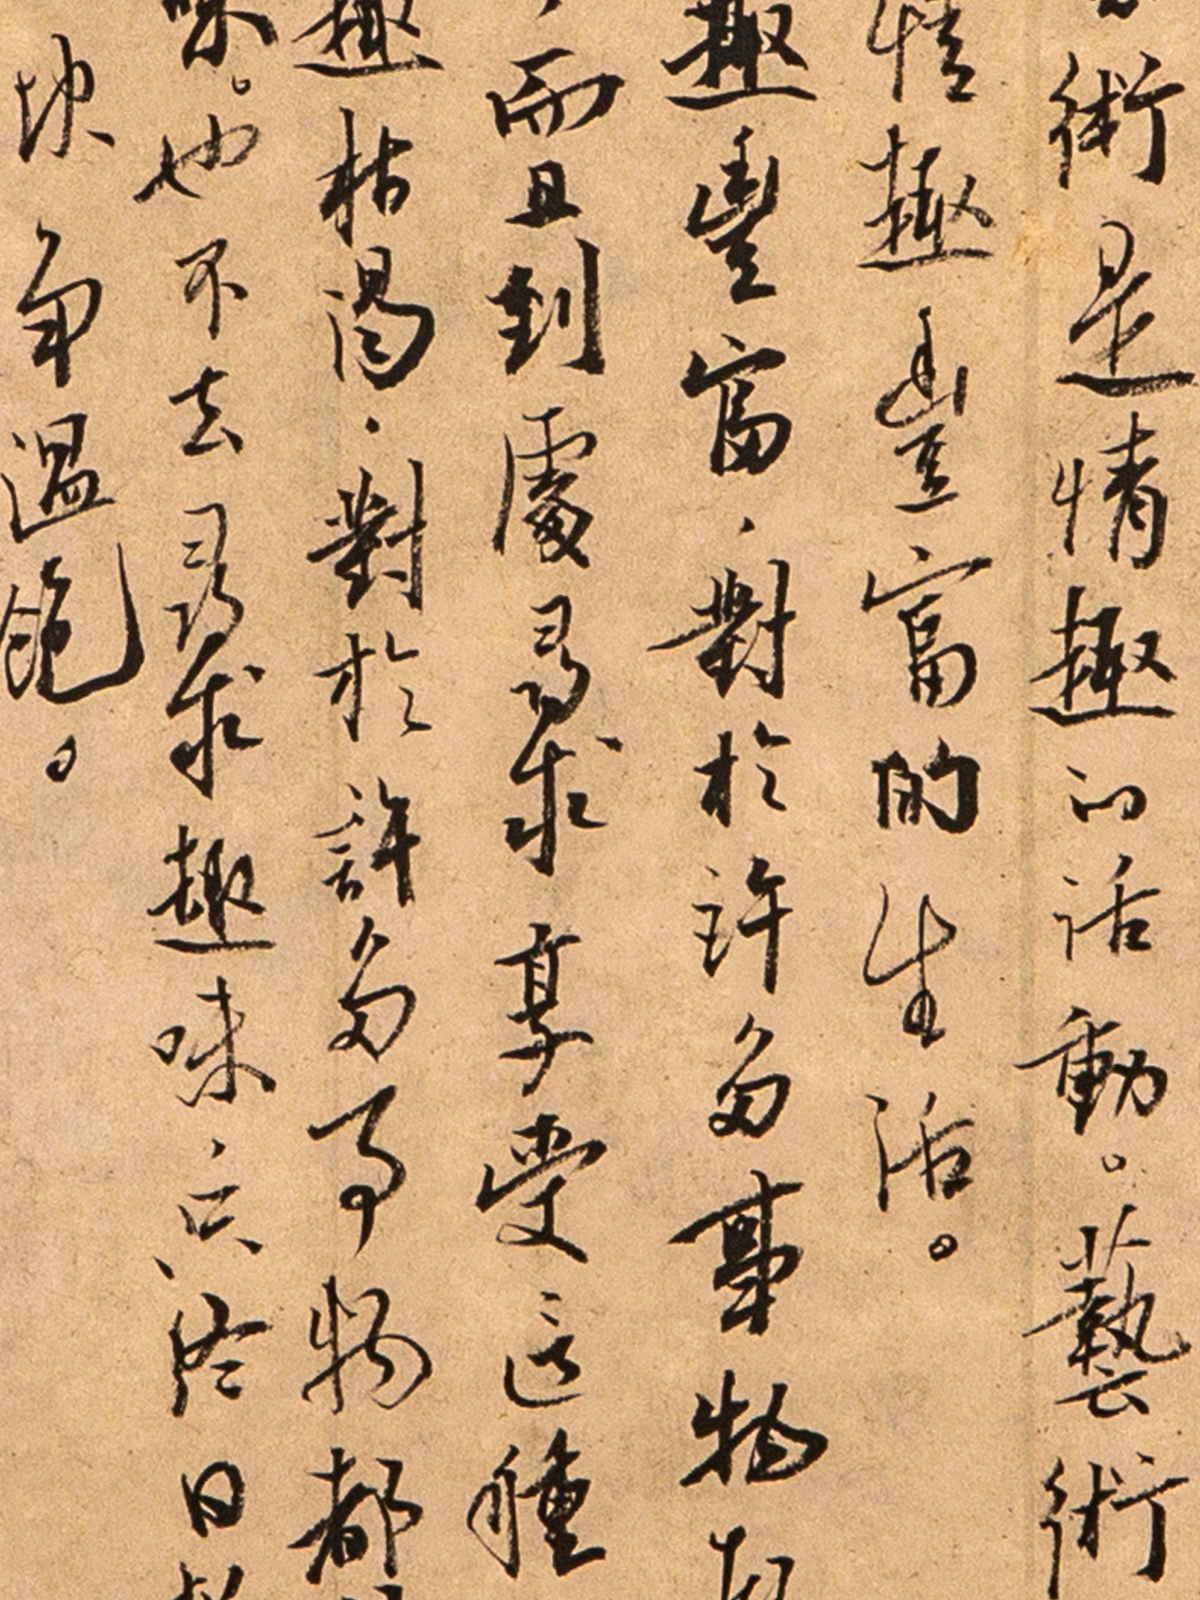 術是情趣的活動。藝術
情趣豐富的生活。
趣豐富，對於許多事物
，而且到處尋求享受這種
趣枯渴，對於許多事物都
味。也不去尋求趣味，只終日
塊爭溫飽。